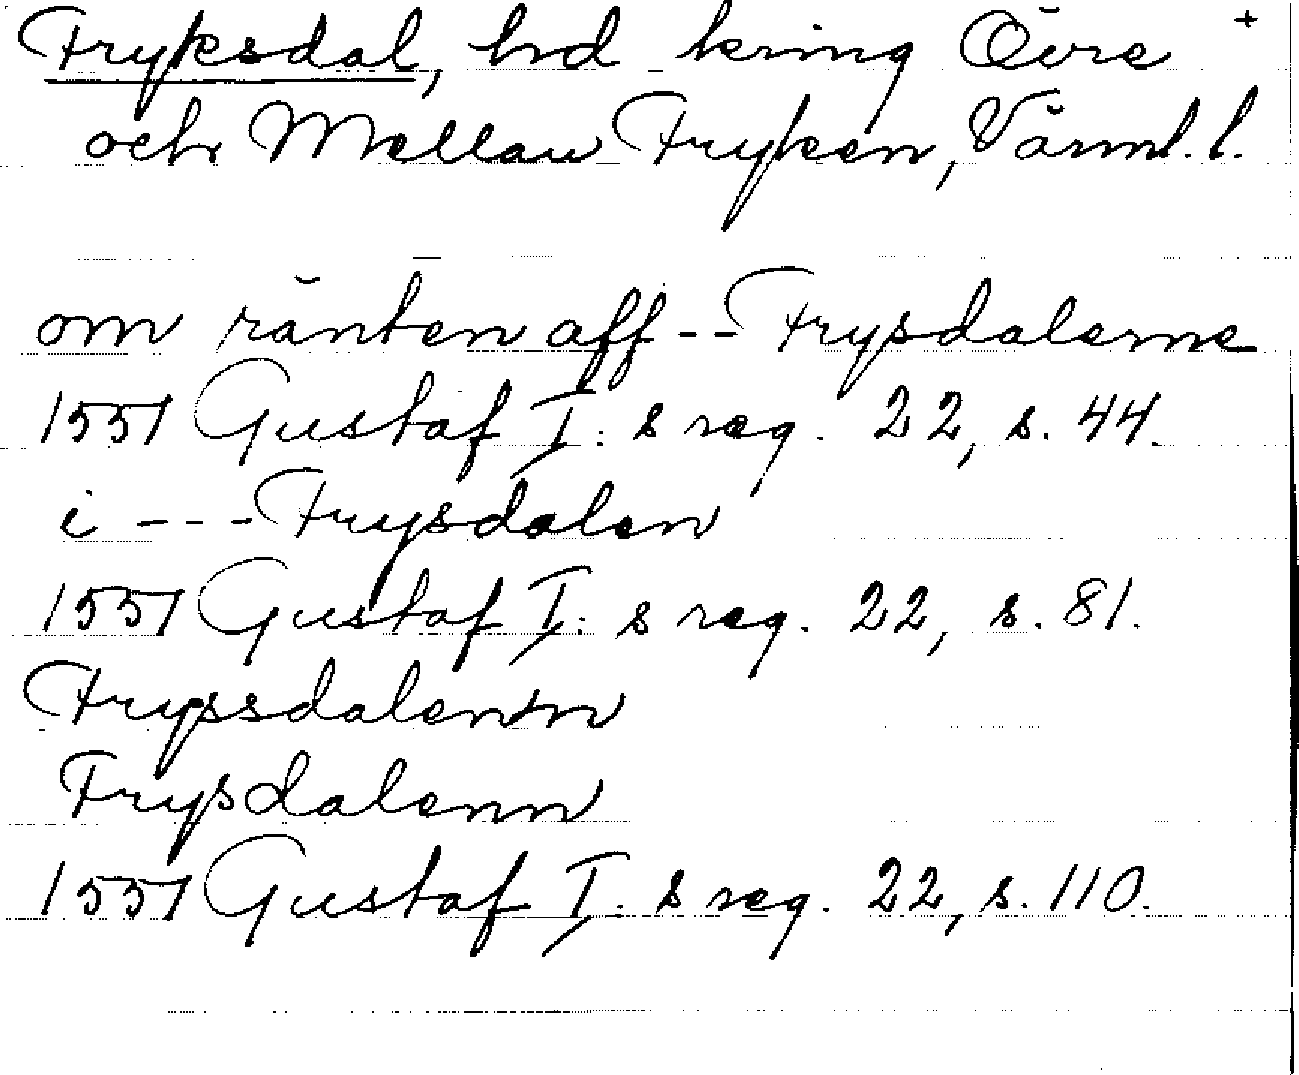 Fryksdal, hd kring Övre +
och Mellan Fryken, Värml. l.
om ränten aff -- Frysdalerne
1551 Gustaf I: s reg. 22, s. 44.
i --- Frysdalen
1551 Gustaf I: s reg. 22, s. 81.
Fryssdalenn
Frysdalenn
1551 Gustaf I: s reg. 22, s. 110.